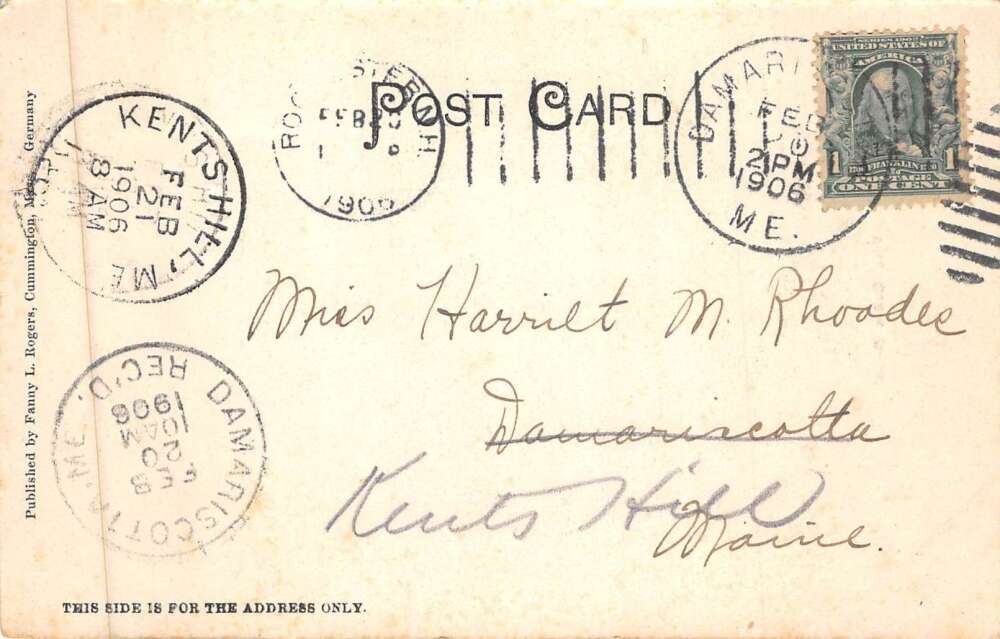 POST CARD
SERIES 1902
UNITED STATES OF
AMERICA
1 FRANKLIN 1
ONE CENT
DAMARI
FEB
20
2 PM
1906
ME.
ROCHESTER N.H.
FEB 20
1906
KENTS HILL, ME
FEB
21
1906
8 AM
Miss Harriet M. Rhoades
Damariscotta
Kents Hill
Maine.
DAMARISCOTTA, ME.
REC'D.
FEB
20
10 AM
1906
Published by Fanny L. Rogers, Cummington, Mass. Germany
THIS SIDE IS FOR THE ADDRESS ONLY.